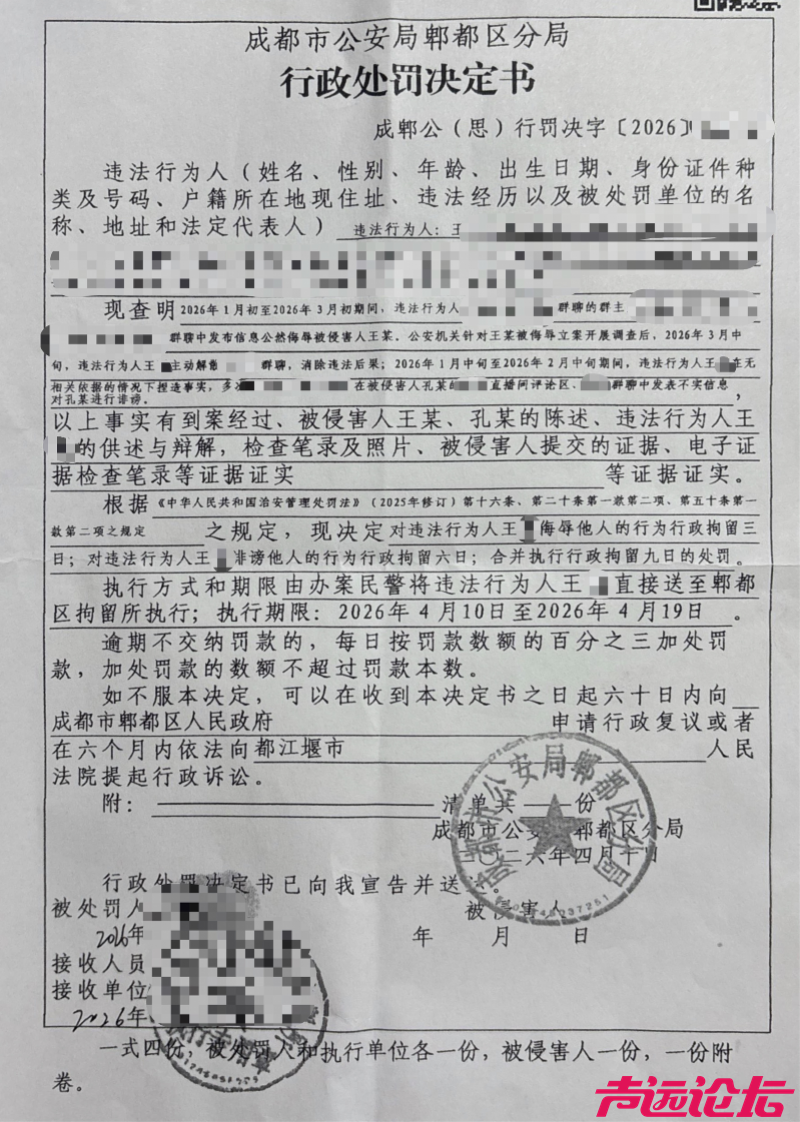 成都市公安局郫都区分局
行政处罚决定书
成郫公（思）行罚决字〔2026〕
违法行为人（姓名、性别、年龄、出生日期、身份证件种
类及号码、户籍所在地现住址、违法经历以及被处罚单位的名
称、地址和法定代表人） 违法行为人：王
现查明2026年1月初至2026年3月初期间，违法行为人 群聊的群主
群聊中发布信息公然侮辱被侵害人王某。公安机关针对王某被侮辱立案开展调查后，2026年3月中
旬，违法行为人王 主动解散 群聊，消除违法后果；2026年1月中旬至2026年2月中旬期间，违法行为人王 在无
相关依据的情况下捏造事实，多次 在被侵害人孔某的 直播间评论区、 群聊中发表不实信息
对孔某进行诽谤。 ，
以上事实有到案经过、被侵害人王某、孔某的陈述、违法行为人王
的供述与辩解，检查笔录及照片、被侵害人提交的证据、电子证
据检查笔录等证据证实 等证据证实。
根据《中华人民共和国治安管理处罚法》（2025年修订）第十六条、第二十条第一款第二项、第五十条第一
款第二项之规定 之规定，现决定 对违法行为人王 侮辱他人的行为行政拘留三
日；对违法行为人王 诽谤他人的行为行政拘留六日；合并执行行政拘留九日的处罚。
执行方式和期限由办案民警将违法行为人王 直接送至郫都
区拘留所执行；执行期限：2026年4月10日至2026年4月19日 。
逾期不交纳罚款的，每日按罚款数额的百分之三加处罚
款，加处罚款的数额不超过罚款本数。
如不服本决定，可以在收到本决定书之日起六十日内向
成都市郫都区人民政府 申请行政复议或者
在六个月内依法向都江堰市 人民
法院提起行政诉讼。
附： 清单共 份
成都市公安局郫都区分局
二〇二六年四月十日
成都市公安局郫都区分局
行政处罚决定书已向我宣告并送达。
被处罚人 被侵害人
2026年 年 月 日
接收人员
接收单位
2026年
执行专用章
一式四份，被处罚人和执行单位各一份，被侵害人一份，一份附
卷。
声远论坛